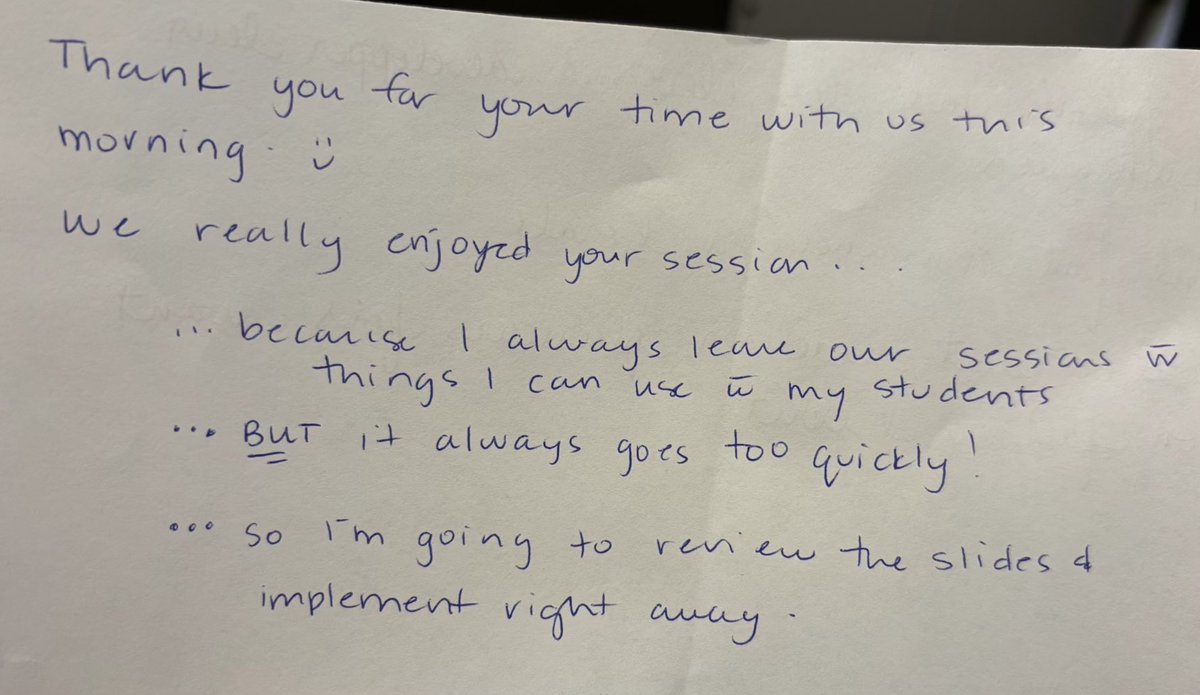 Thank you for your time with us this
morning. :)
We really enjoyed your session...
... because I always leave our sessions w̄
things I can use w̄ my students
... BUT it always goes too quickly!
... so I'm going to review the slides &
implement right away.